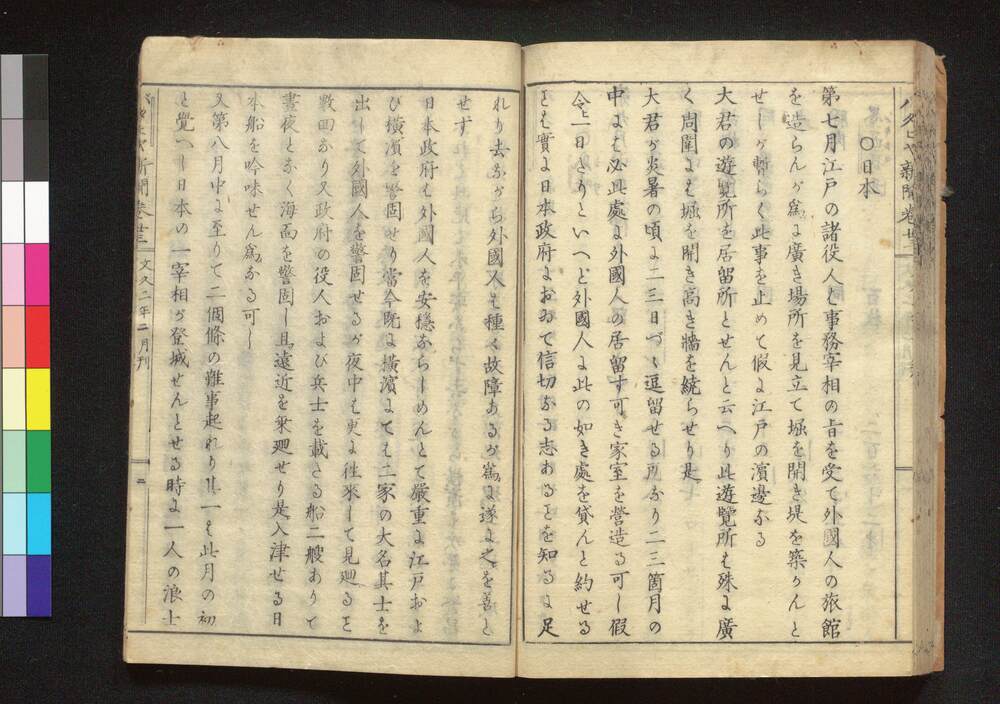 〇日本
第七月江戸の諸役人と事務宰相の旨を受て外國人の旅館
を造らんが爲に廣き場所を見立て堀を開き堤を築かんと
せしが暫らく此事を止めて假に江戸の濱邊なる
大君の遊覧所を居留所とせんと云へり此遊覧所も殊に廣
く周圍にも堀を開き高き牆を繞らせり是
大君が炎暑の頃に二三日づゝ逗留せる所なり二三箇月の
中にも必此處に外國人の居留す可き家室を營造る可し假
令一日なりといへど外國人に此の如き處を貸んと約せる
とも實に日本政府において信切なる志あるとを知るに足
れり去ながら外國人も種々故障あるが爲に遂に之を善と
せず
日本政府も外國人を安穏ならしめんとて嚴重に江戸およ
び横濱を警固せり當今既に横濱にても二家の大名其士を
出して外國人を警固せるが夜中も更に往來して見廻ると
數回なり又政府の役人および兵士を載たる船二艘ありて
晝夜となく海面を警固し且遠近を乗廻せり是入津せる日
本船を吟味せん爲なる可し
又第八月中に至りて二個條の難事起れり其一も此月の初
と覺へし日本の一宰相が登城せんとせる時に一人の浪士
新聞 巻廿三 文久二年二月刊 二